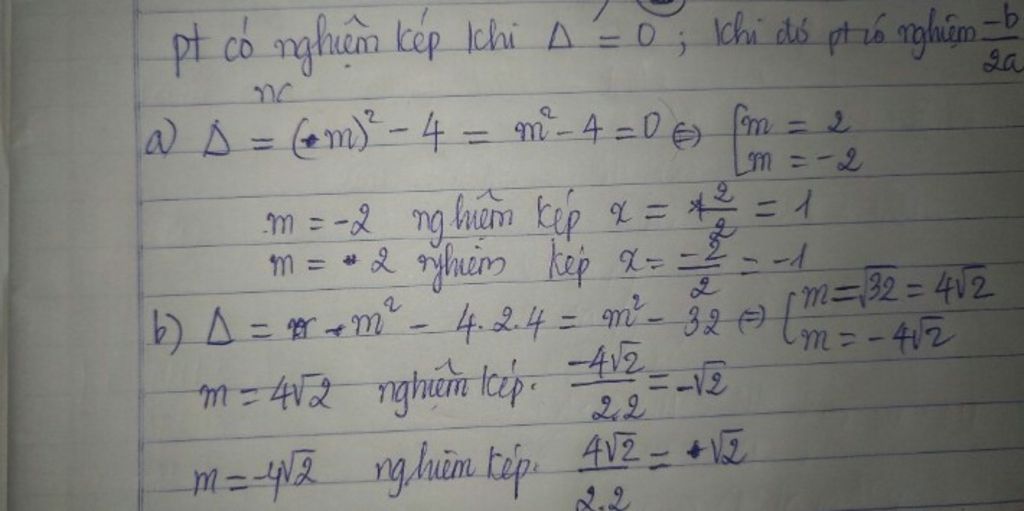 pt có nghiệm kép khi Δ = 0 ; khi đó pt có nghiệm -b/2a
a) Δ = (m)² - 4 = m² - 4 = 0 ⇔ [m = 2
[m = -2
m = -2 nghiệm kép x = 2/2 = 1
m = 2 nghiệm kép x = -2/2 = -1
b) Δ = m² - 4.2.4 = m² - 32 ⇔ [m = √32 = 4√2
[m = -4√2
m = 4√2 nghiệm kép. -4√2/2.2 = -√2
m = -4√2 nghiệm kép. 4√2/2.2 = √2